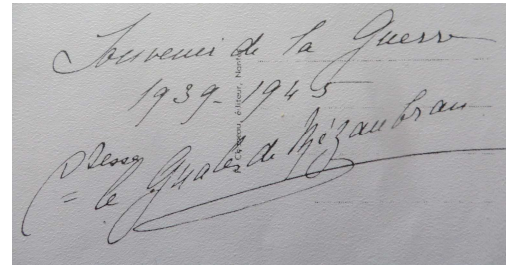 Souvenir de la Guerre
1939-1945
Ctesse le Gualès de Mézaubran
éditeur,